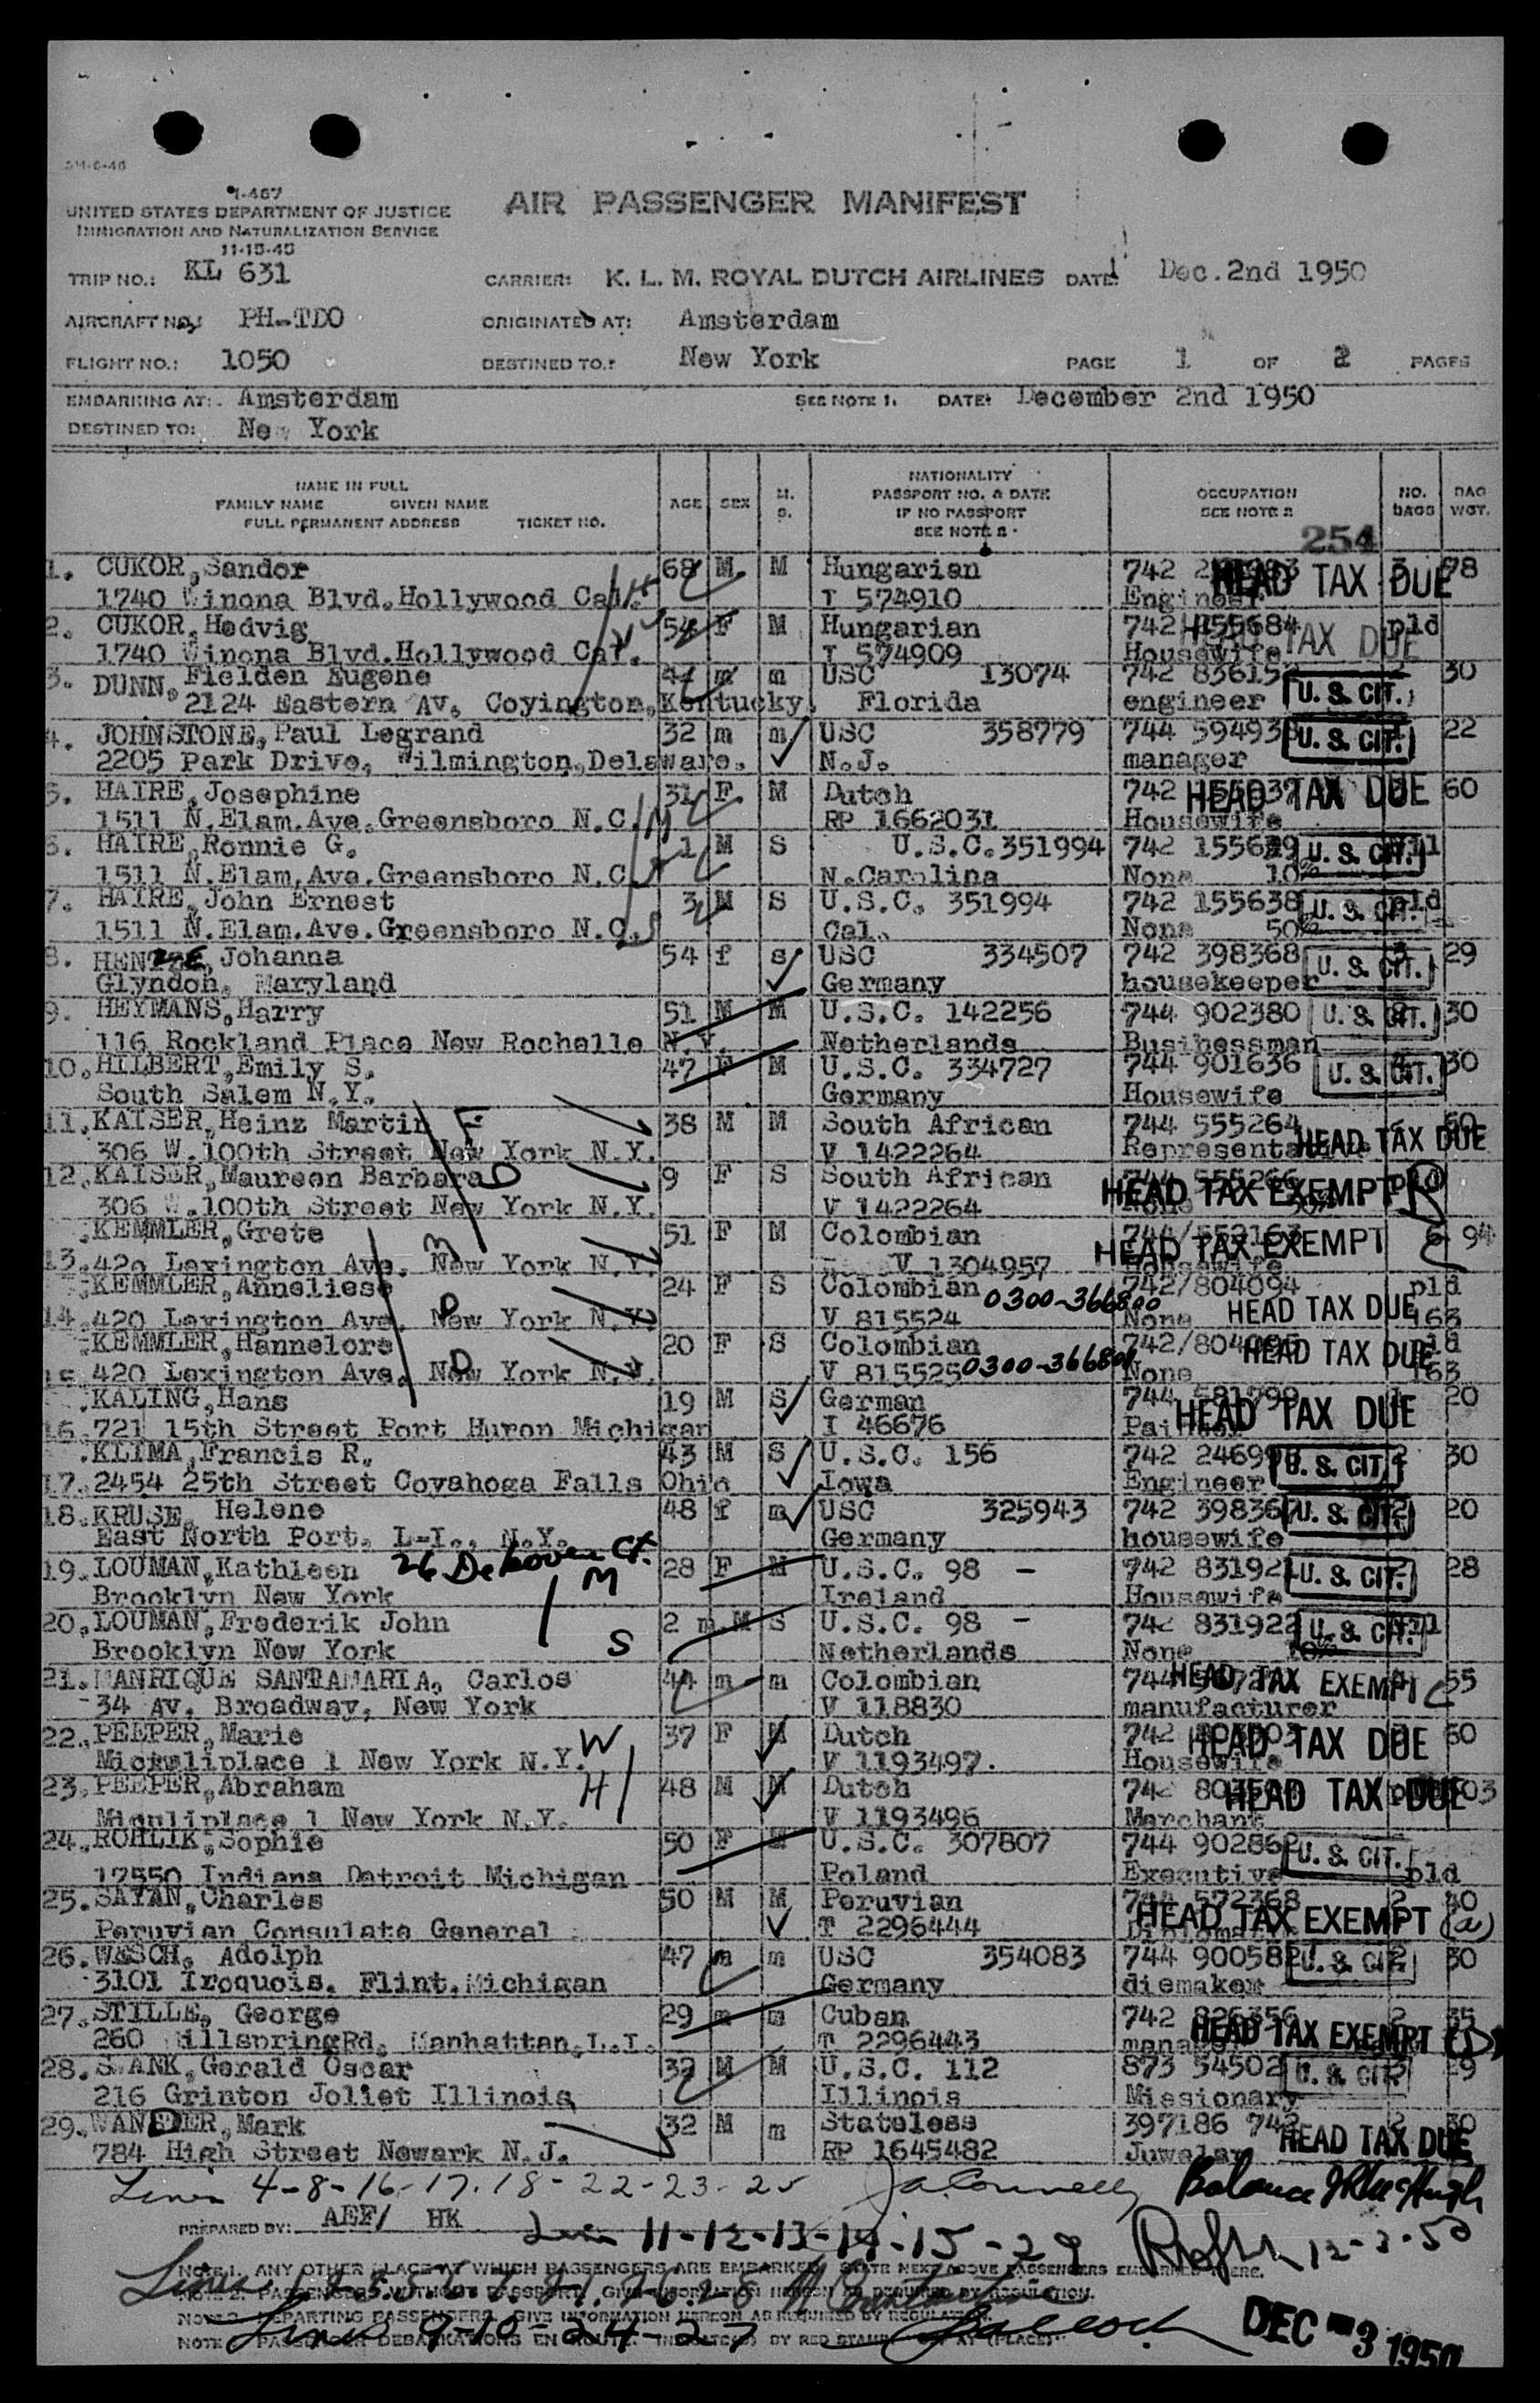 1-467
UNITED STATES DEPARTMENT OF JUSTICE
IMMIGRATION AND NATURALIZATION SERVICE
11-15-45
AIR PASSENGER MANIFEST
TRIP NO.: KL 631 CARRIER: K. L. M. ROYAL DUTCH AIRLINES DATE: Dec. 2nd 1950
AIRCRAFT NO.: PH-TDO ORIGINATED AT: Amsterdam
FLIGHT NO.: 1050 DESTINED TO: New York PAGE 1 OF 2 PAGES
EMBARKING AT: Amsterdam SEE NOTE 1. DATE: December 2nd 1950
DESTINED TO: New York
NAME IN FULL
FAMILY NAME GIVEN NAME
FULL PERMANENT ADDRESS TICKET NO.
AGE SEX M. S.
NATIONALITY
PASSPORT NO. & DATE
IF NO PASSPORT
SEE NOTE 2
OCCUPATION
SEE NOTE 2
NO. BAGS BAG WGT.
254
1. CUKOR, Sandor 68 M M Hungarian 742 HEAD TAX DUE 78
1740 Winona Blvd. Hollywood Cal. T 574910 Engineer
2. CUKOR, Hedvig 54 F M Hungarian 742 455684 HEAD TAX DUE pld
1740 Winona Blvd. Hollywood Cal. T 574909 Housewife
3. DUNN, Fielden Eugene m m USC 13074 742 83615 U. S. CIT. 30
2124 Eastern Av, Coyington, Kentucky. Florida engineer
4. JOHNSTONE, Paul Legrand 32 m m USC 358779 744 59493 U. S. CIT. 22
2205 Park Drive, Wilmington, Delaware. N.J. manager
5. HAIRE, Josephine 31 F. M Dutch 742 HEAD TAX DUE 60
1511 N.Elam.Ave.Greensboro N.C. M RP 1662031 Housewife
6. HAIRE, Ronnie G. 1 M S U.S.C. 351994 742 155639 U. S. CIT.
1511 N.Elam.Ave.Greensboro N.C. N.Carolina None 10%
7. HAIRE, John Ernest 3 M S U.S.C. 351994 742 155638 U. S. CIT. pld
1511 N.Elam.Ave.Greensboro N.C. S Cal. None 50%
8. HENTZE, Johanna 54 f s USC 334507 742 398368 U. S. CIT. 3 29
Glyndon, Maryland Germany housekeeper
9. HEYMANS, Harry 51 M M U.S.C. 142256 744 902380 U. S. CIT. 30
116 Rockland Place New Rochelle N.Y. Netherlands Busihessman
10. HILBERT, Emily S. 47 F M U.S.C. 334727 744 901636 U. S. CIT. 30
South Salem N.Y. Germany Housewife
11. KAISER, Heinz Martin F 38 M M South African 744 555264 60
306 W.100th Street New York N.Y. V 1422264 HEAD TAX DUE
12. KAISER, Maureen Barbara D 9 F S South African 744 555266
306 W.100th Street New York N.Y. V 1422264 None HEAD TAX EXEMPT
KEMMLER, Grete M 51 F M Colombian 744/552163 6 94
13. 420 Lexington Ave. New York N.Y. V 1304957 Housewife HEAD TAX EXEMPT
KEMMLER, Anneliese D 24 F S Colombian 0300-366800 742/804094 pld
14. 420 Lexington Ave. New York N.Y. V 815524 None HEAD TAX DUE 163
KEMMLER, Hannelore D 20 F S Colombian 742/804095 HEAD TAX DUE pld
15. 420 Lexington Ave. New York N.Y. V 815525 0300-366801 None 163
KALING, Hans 19 M S German 744 581799 20
16. 721 15th Street Port Huron Michigan I 46676 HEAD TAX DUE
KLIMA, Francis R. 43 M S U.S.C. 156 742 24699 U. S. CIT. 2 30
17. 2454 25th Street Coyahoga Falls Ohio Iowa Engineer
18. KRUSE, Helene 48 f m USC 325943 742 398367 U. S. CIT. 2 20
East North Port, L-I., N.Y. Germany housewife
19. LOUMAN, Kathleen 26 Dekoven Ct. M 28 F M U.S.C. 98 - 742 831921 U. S. CIT. 2 28
Brooklyn New York Ireland Housewife
20. LOUMAN, Frederik John 2 m. M S U.S.C. 98 - 742 831922 U. S. CIT.
Brooklyn New York S Netherlands None 10%
21. MANRIQUE SANTAMARIA, Carlos 44 m m Colombian 744 HEAD TAX EXEMPT 55
34 AV. Broadway, New York V 118830 manufacturer
22. PEEPER, Marie W 37 F M Dutch 742 HEAD TAX DUE 60
place 1 New York N.Y. V 1193497. Housewife
23. PEEPER, Abraham H 48 M M Dutch 742 HEAD TAX DUE
place 1 New York N.Y. V 1193496 Merchant
24. ROHLIK, Sophie 50 F M U.S.C. 307807 744 902862 U. S. CIT.
17550 Indiana Detroit Michigan Poland Executive pld
25. SAYAN, Charles 50 M M Peruvian 744 572368 2 40
Peruvian Consulate General T 2296444 HEAD TAX EXEMPT (a)
26. WESCH, Adolph 47 m m USC 354083 744 900582 U. S. CIT. 2 30
3101 Iroquois. Flint. Michigan Germany diemaker
27. STILLE, George 29 m m Cuban 742 826356 2 35
260 HillspringRd, Manhattan, L.I. T 2296443 manager HEAD TAX EXEMPT
28. SWANK, Gerald Oscar 32 M M U.S.C. 112 873 54502 U. S. CIT.
216 Grinton Joliet Illinois Illinois Missionary
29. WANDER, Mark 32 M m Stateless 397186 742 2 30
784 High Street Newark N.J. RP 1645482 Juwelar HEAD TAX DUE
Lines 4-8-16-17-18-22-23-25 Balance
PREPARED BY: AEF/ HK Lines 11-12-13-14-15-29 12-3-50
NOTE 1. ANY OTHER PLACE AT WHICH PASSENGERS ARE EMBARKED STATE NEXT ABOVE PASSENGERS EMBARKED THERE.
NOTE 2. PASSENGERS WITHOUT PASSPORT, GIVE INFORMATION HEREON AS REQUIRED BY REGULATION.
NOTE 3. DEPARTING PASSENGERS. GIVE INFORMATION HEREON AS REQUIRED BY REGULATION.
Lines 9-10-24-27
DEC -3 1950